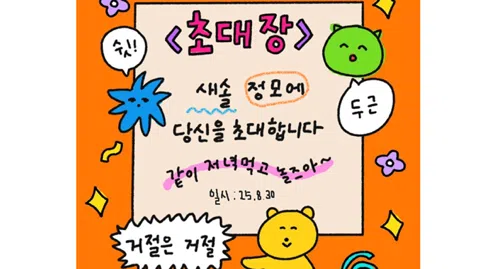 <초대장>
쉿!
새솔 정모에
두근
당신을 초대합니다
같이 저녁먹고 놀즈아~
일시 : 25.8.30
거절은 거절